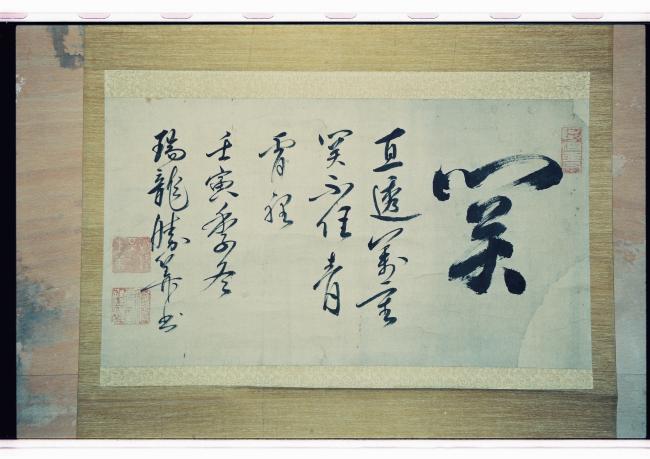 関
直透萬重
関不住青
霄裡
壬寅季冬
瑞龍勝筭書